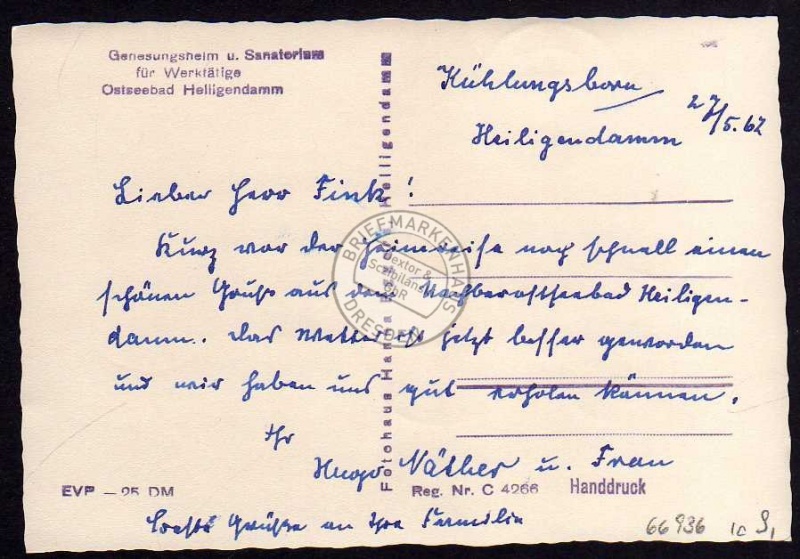 Genesungsheim u. Sanatorium
für Werktätige
Ostseebad Heiligendamm
Kühlungsborn
27/5.62
Heiligendamm
Lieber Herr Fink!
Kurz vor der Heimreise noch schnell einen
schönen Gruß aus dem Nachbarostseebad Heiligen-
damm. Das Wetter ist jetzt besser geworden
und wir haben uns gut erholen können.
Ihr
Hugo Näther u. Frau
Beste Grüße an Ihre Familie
EVP — 25 DM
Fotohaus Hansa Heiligendamm
Reg. Nr. C 4266 Handdruck
66936
BRIEFMARKENHAUS
Textor &
Schibilansky
GbR
DRESDEN